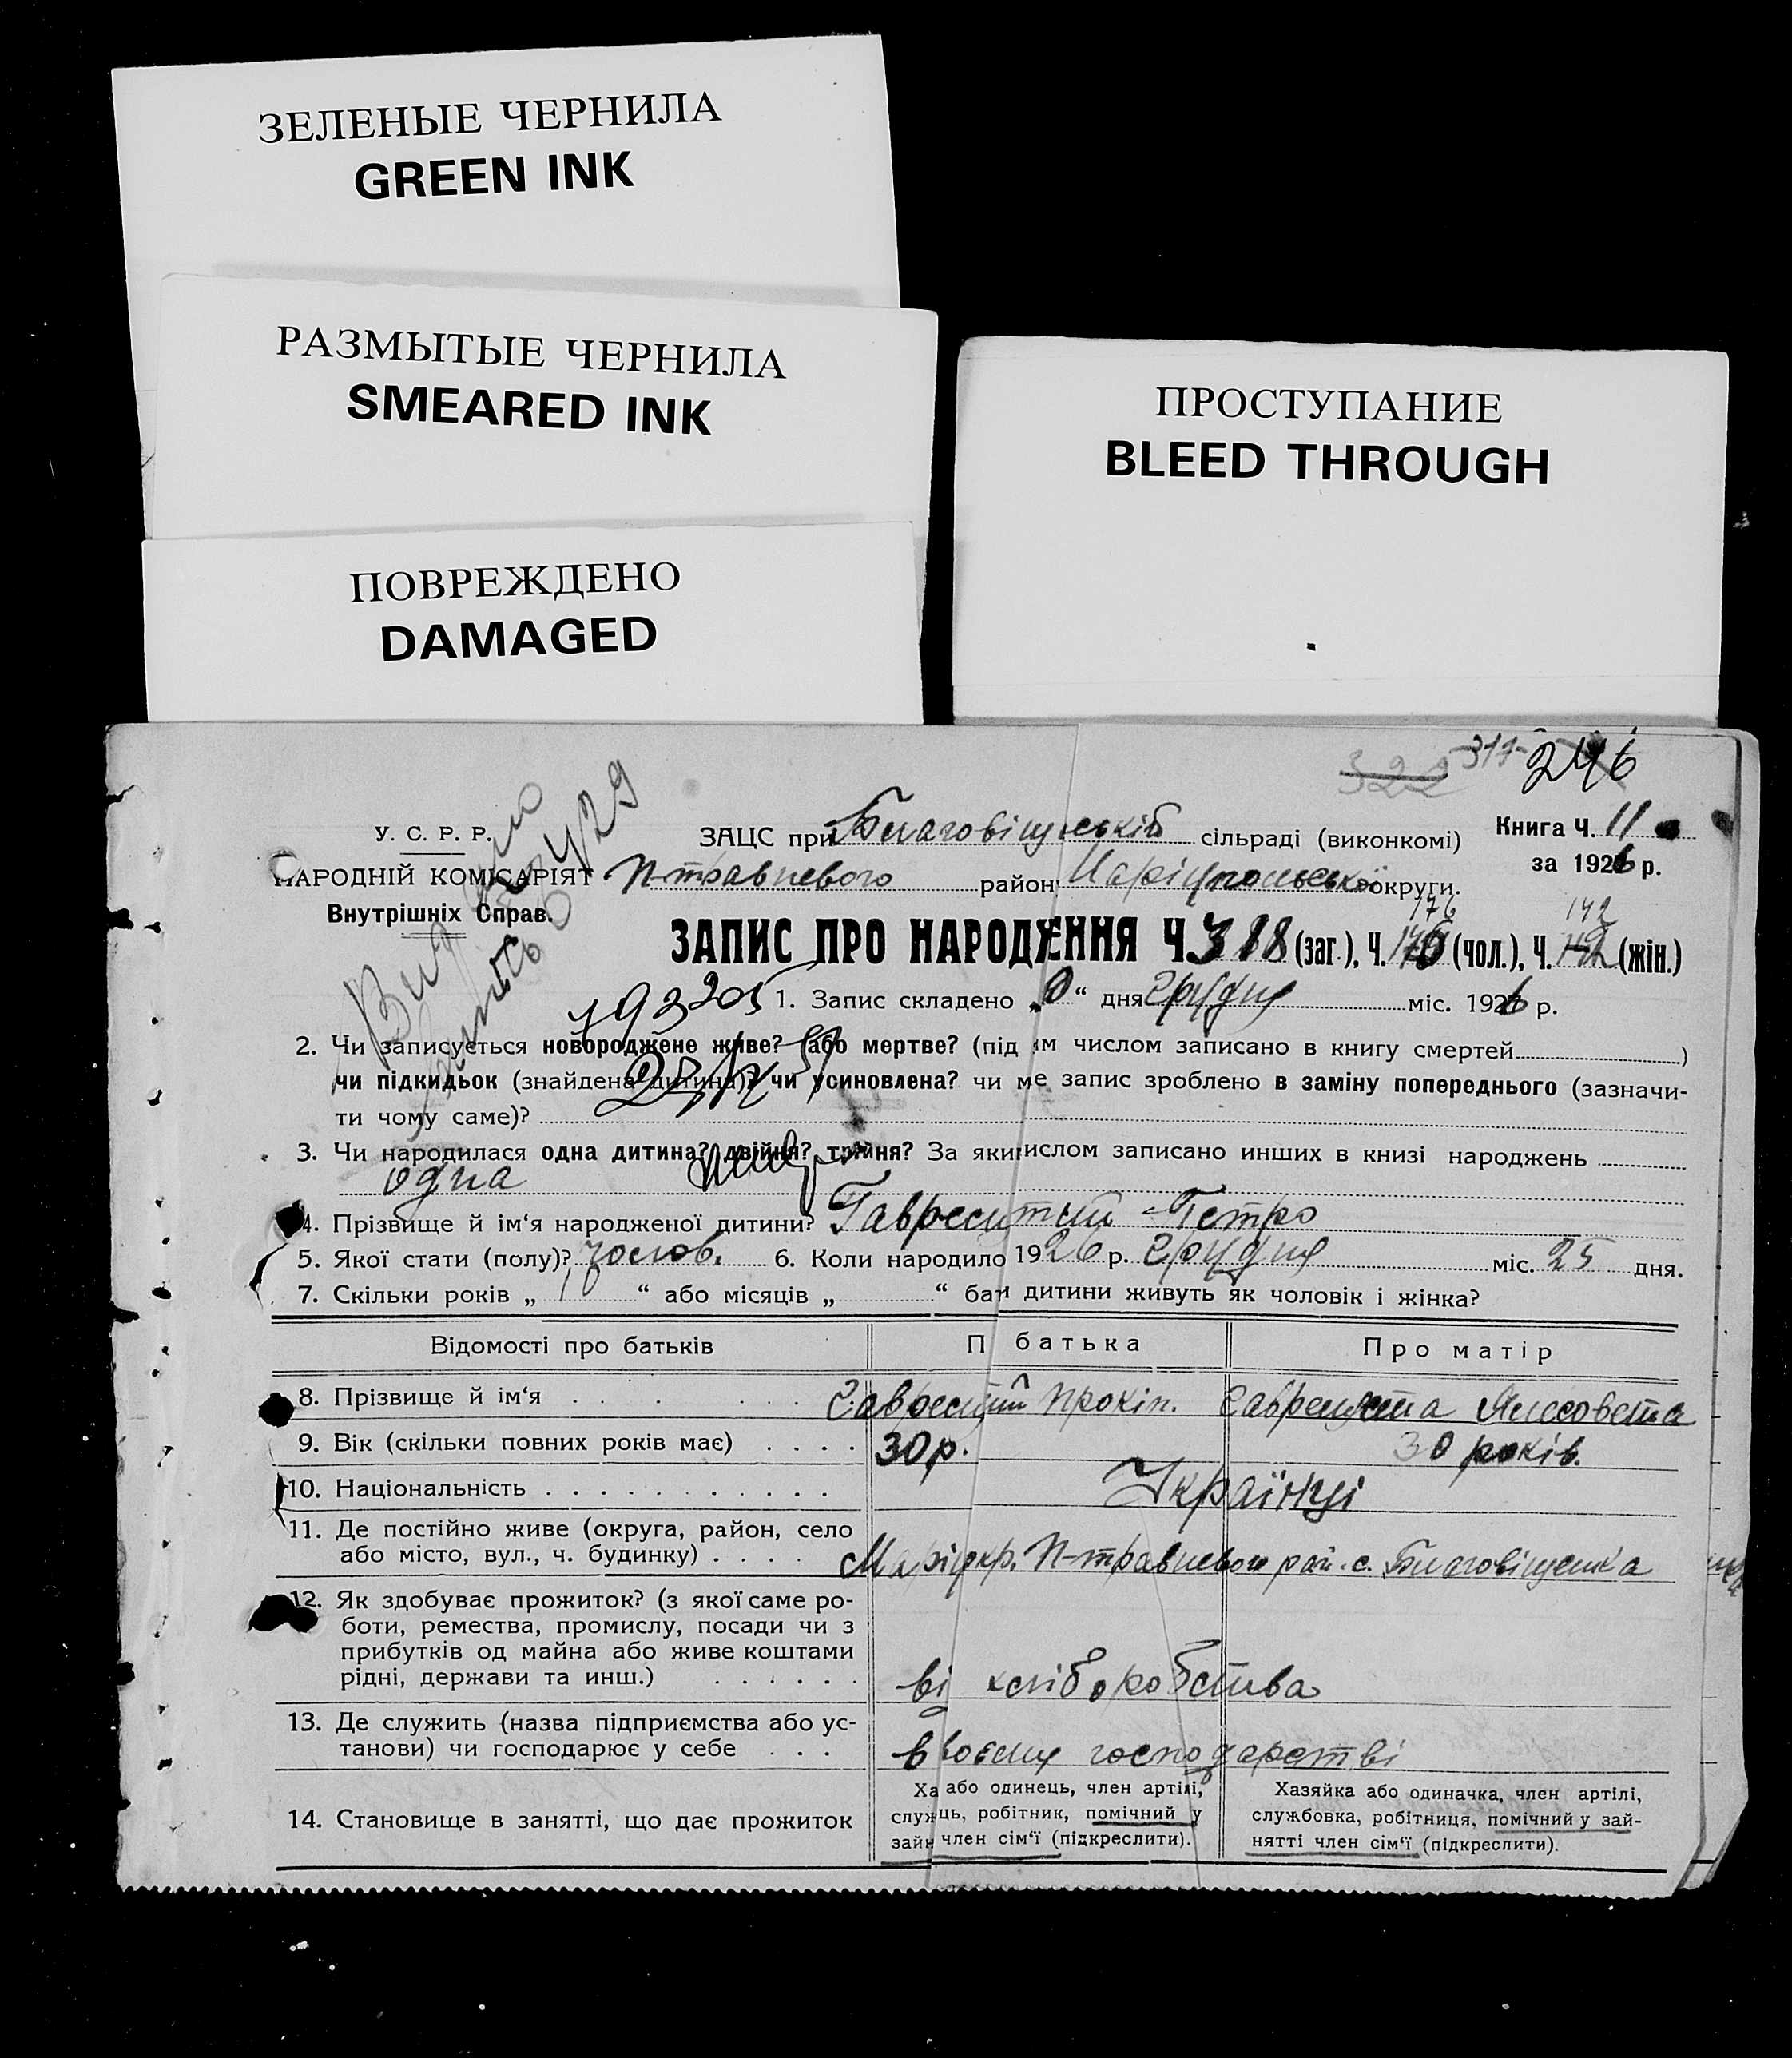 ЗЕЛЕНЫЕ ЧЕРНИЛА
GREEN INK
РАЗМЫТЫЕ ЧЕРНИЛА
SMEARED INK
ПРОСТУПАНИЕ
BLEED THROUGH
ПОВРЕЖДЕНО
DAMAGED
322 317 246
У. С. Р. Р. ЗАЦС при Благовіщеській сільраді (виконкомі) Книга Ч. 11
НАРОДНІЙ КОМІСАРІЯТ П-травневого район Маріупольської округи. за 1926 р.
Внутрішніх Справ.
176 142
ЗАПИС ПРО НАРОДЖЕННЯ Ч. 318 (заг.), Ч. (чол.), Ч. 142 (жін.)
1. Запис складено „ “ дня Грудня міс. 1926 р.
2. Чи записується новороджене живе? або мертве? (під им числом записано в книгу смертей )
чи підкидьок (знайдена дитина)? чи усиновлена? чи ме запис зроблено в заміну попереднього (зазначи-
ти чому саме)?
3. Чи народилася одна дитина? двійня? трійня? За яки ислом записано инших в книзі народжень
одна
4. Прізвище й ім‘я народженої дитини? Петро
5. Якої стати (полу)? чолов. 6. Коли народило 1926 р. Грудня міс. 25 дня.
7. Скільки років „ 10 “ або місяців „ “ бат дитини живуть як чоловік і жінка?
Відомості про батьків П батька Про матір
8. Прізвище й ім‘я Прокіп.
9. Вік (скільки повних років має) 30 р. 30 років.
10. Національність Українці
11. Де постійно живе (округа, район, село
або місто, вул., ч. будинку) Маріупкр. П-травневого рай. с. Благовіщенка
12. Як здобуває прожиток? (з якої саме ро-
боти, ремества, промислу, посади чи з
прибутків од майна або живе коштами
рідні, держави та инш.) ві хліборобства
13. Де служить (назва підприємства або ус-
танови) чи господарює у себе в воєму господарстві
14. Становище в занятті, що дає прожиток
Ха або одинець, член артілі,
служ ць, робітник, помічний у
зайн член сім‘ї (підкреслити).
Хазяйка або одиначка, член артілі,
службовка, робітниця, помічний у зай-
нятті член сім‘ї (підкреслити).